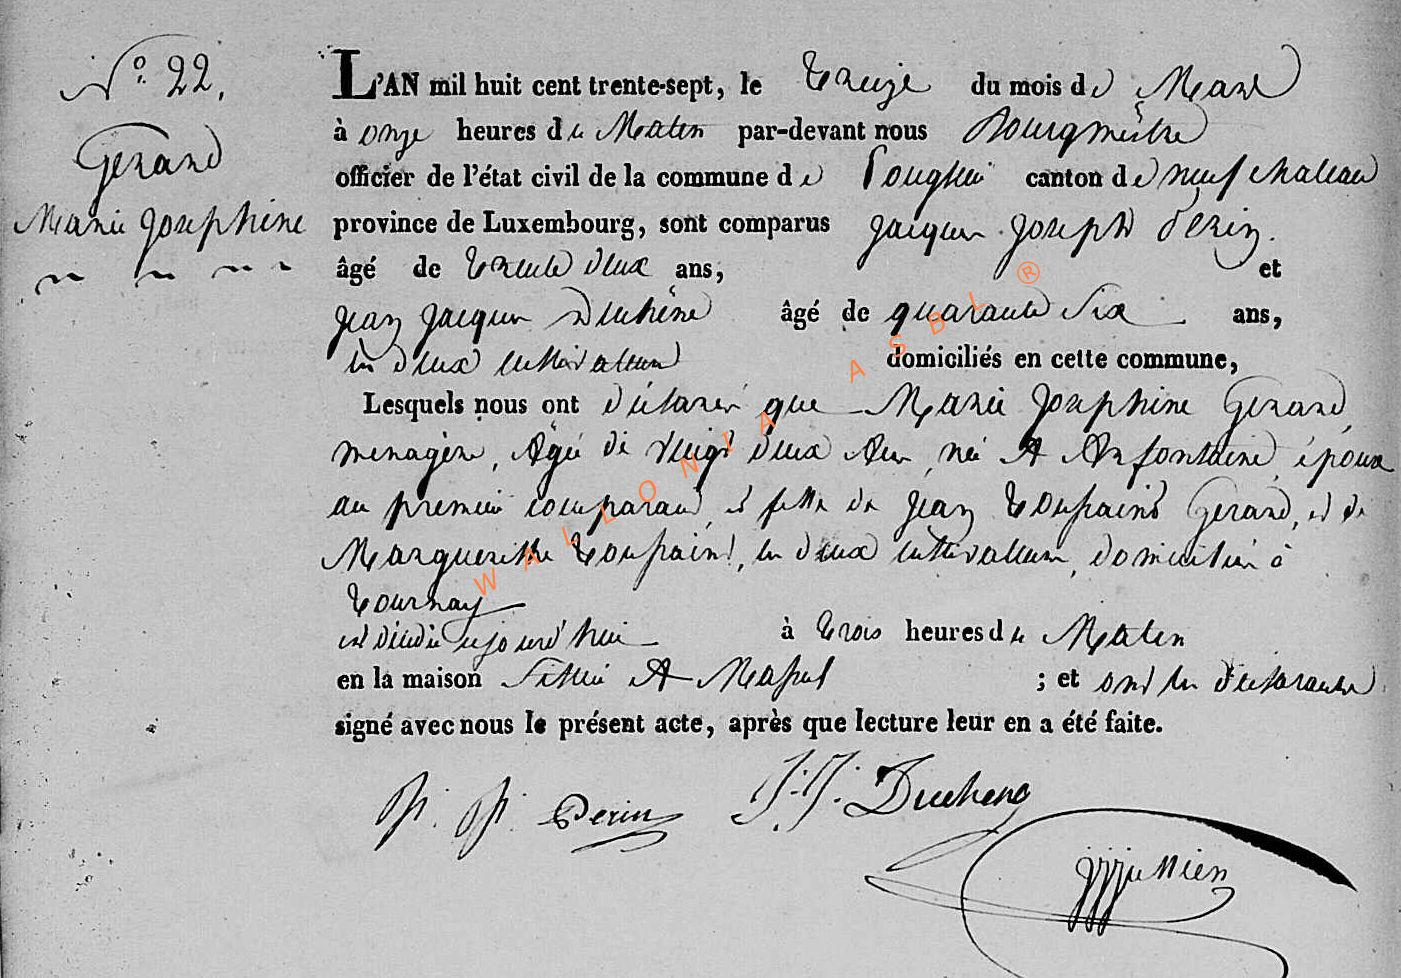 N° 22,
Gerard
Marie Josephine
L'AN mil huit cent trente-sept, le treize du mois de Mars
à onze heures du Matin par-devant nous Bourgmêstre
officier de l'état civil de la commune de Longlier canton de neufchateau
province de Luxembourg, sont comparus Jacques Joseph Perin
âgé de trente deux ans, et
Jean Jacques Duchêne âgé de quarante six ans,
les deux cultivateurs domiciliés en cette commune,
Lesquels nous ont déclaré que Marie Josephine Gerard,
menagère, Agée de vingt deux Ans, née A Offontaine, épouse
au premier comparant, et fille de Jean Toussaint Gerard, et de
Marguerithe Toussaint, les deux cultivateurs, domiciliés à
Tournay
est décédée aujourd'hui à trois heures du Matin
en la maison située A Massul ; et ont les déclarants
signé avec nous le présent acte, après que lecture leur en a été faite.
J. J. Perin J. J. Duchene
WALLONIA ASBL ®